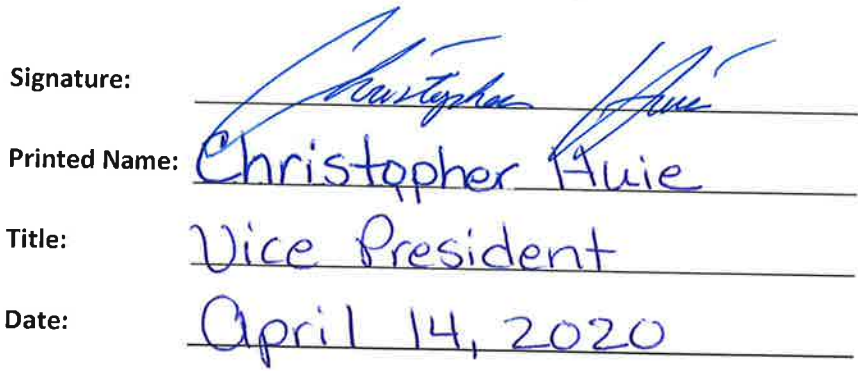 Signature: Christopher Huie
Printed Name: Christopher Huie
Title: Vice President
Date: April 14, 2020